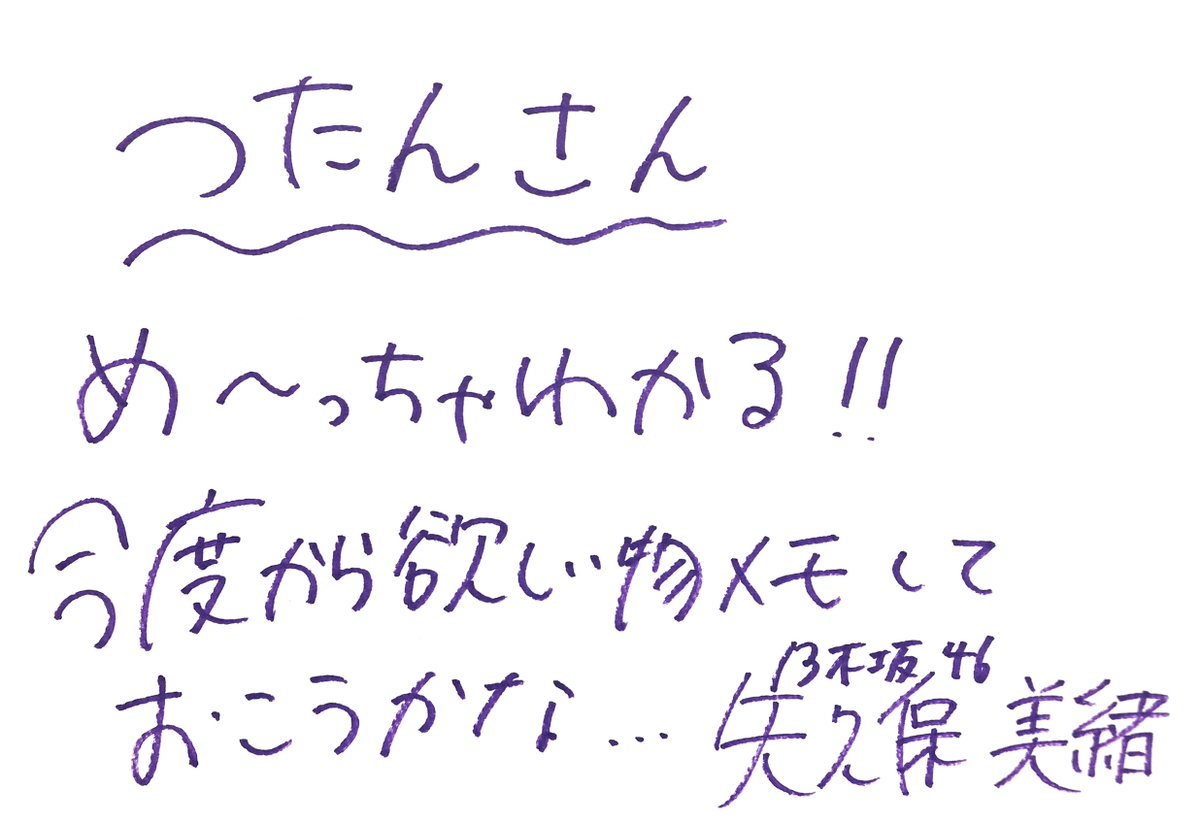 つたんさん
め〜っちゃわかる!!
今度から欲しい物メモして
おこうかな...
乃木坂46
矢久保美緒